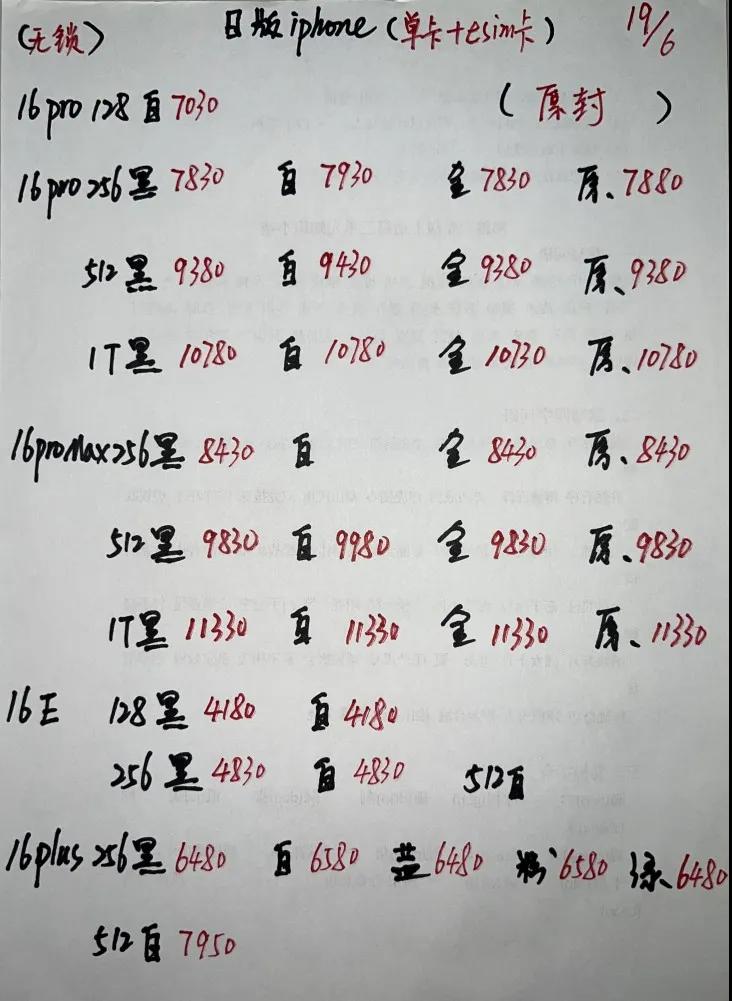 (无锁) 日版iphone(单卡+esim卡) 19/6
16pro 128白7030 (原封)
16pro256黑7830 白7930 金7830 原、7880
512黑9380 白9430 金9380 原、9380
1T黑10780 白10780 金10730 原、10780
16proMax256黑8430 白 金8430 原、8430
512黑9830 白9980 金9830 原、9830
1T黑11330 白11330 金11330 原、11330
16E 128黑4180 白4180
256黑4830 白4830 512白
16plus256黑6480 白6580 蓝6480 粉6580 绿、6480
512白7950